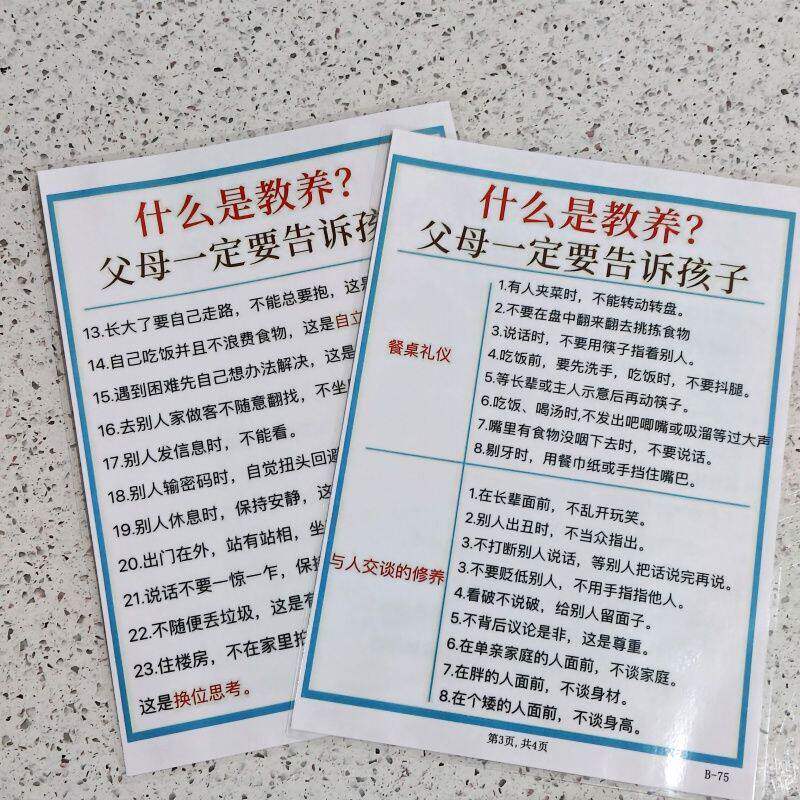 什么是教养？
父母一定要告诉孩
13.长大了要自己走路，不能总要抱，这是
14.自己吃饭并且不浪费食物，这是自立
15.遇到困难先自己想办法解决，这是
16.去别人家做客不随意翻找，不坐
17.别人发信息时，不能看。
18.别人输密码时，自觉扭头回避
19.别人休息时，保持安静，这
20.出门在外，站有站相，坐
21.说话不要一惊一乍，保持
22.不随便丢垃圾，这是有
23.住楼房，不在家里拍
这是换位思考。
什么是教养？
父母一定要告诉孩子
餐桌礼仪
1.有人夹菜时，不能转动转盘。
2.不要在盘中翻来翻去挑拣食物
3.说话时，不要用筷子指着别人。
4.吃饭前，要先洗手，吃饭时，不要抖腿。
5.等长辈或主人示意后再动筷子。
6.吃饭、喝汤时,不发出吧唧嘴或吸溜等过大声
7.嘴里有食物没咽下去时，不要说话。
8.剔牙时，用餐巾纸或手挡住嘴巴。
与人交谈的修养
1.在长辈面前，不乱开玩笑。
2.别人出丑时，不当众指出。
3.不打断别人说话，等别人把话说完再说。
3.不要贬低别人，不用手指指他人。
4.看破不说破，给别人留面子。
5.不背后议论是非，这是尊重。
6.在单亲家庭的人面前，不谈家庭。
7.在胖的人面前，不谈身材。
8.在个矮的人面前，不谈身高。
第3页，共4页
B-75